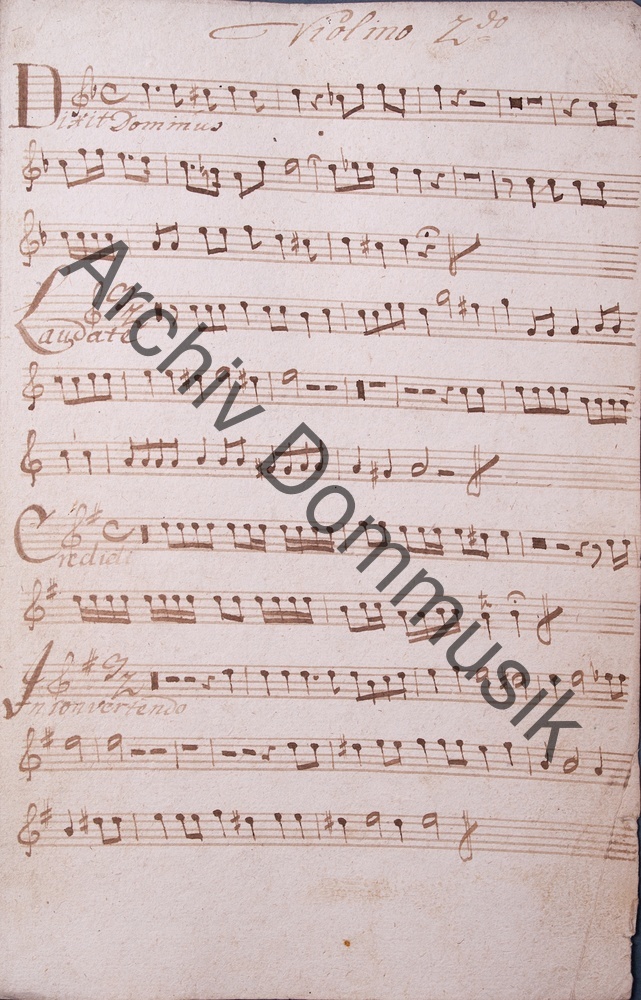 Violino 2do
Dixit Dominus
Laudate
Credidi
In convertendo
Archiv Dommusik